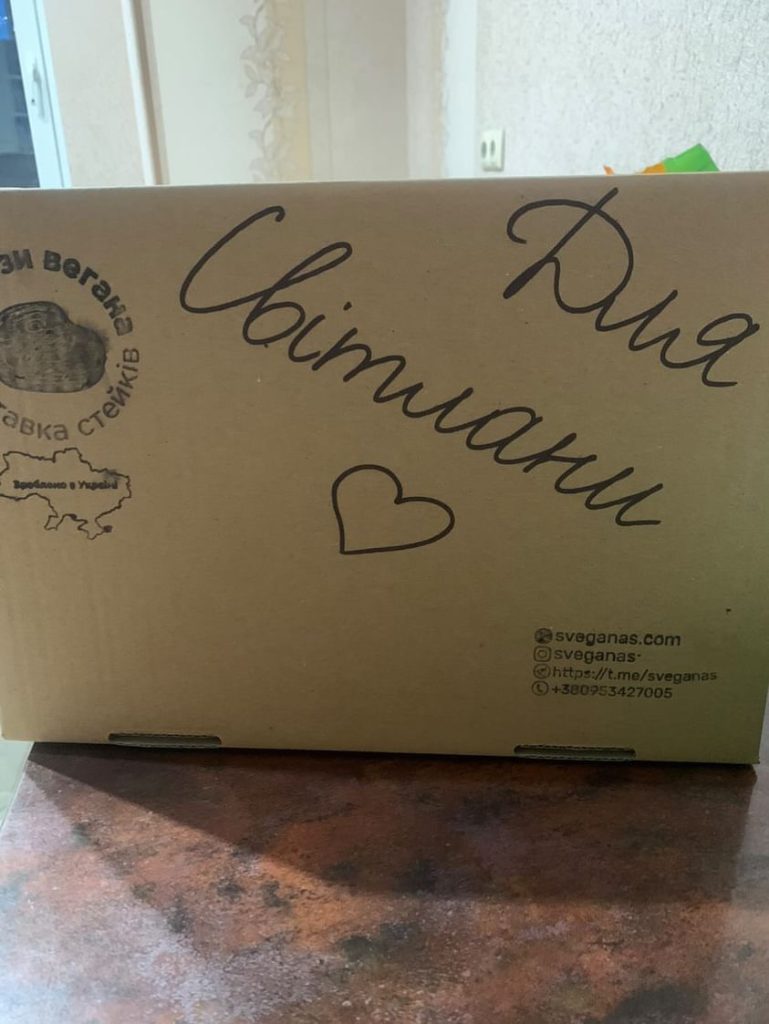 Для
Світлани
зи вегана
тавка стейків
Зроблено в Україні
sveganas.com
sveganas
https://t.me/sveganas
+380953427005